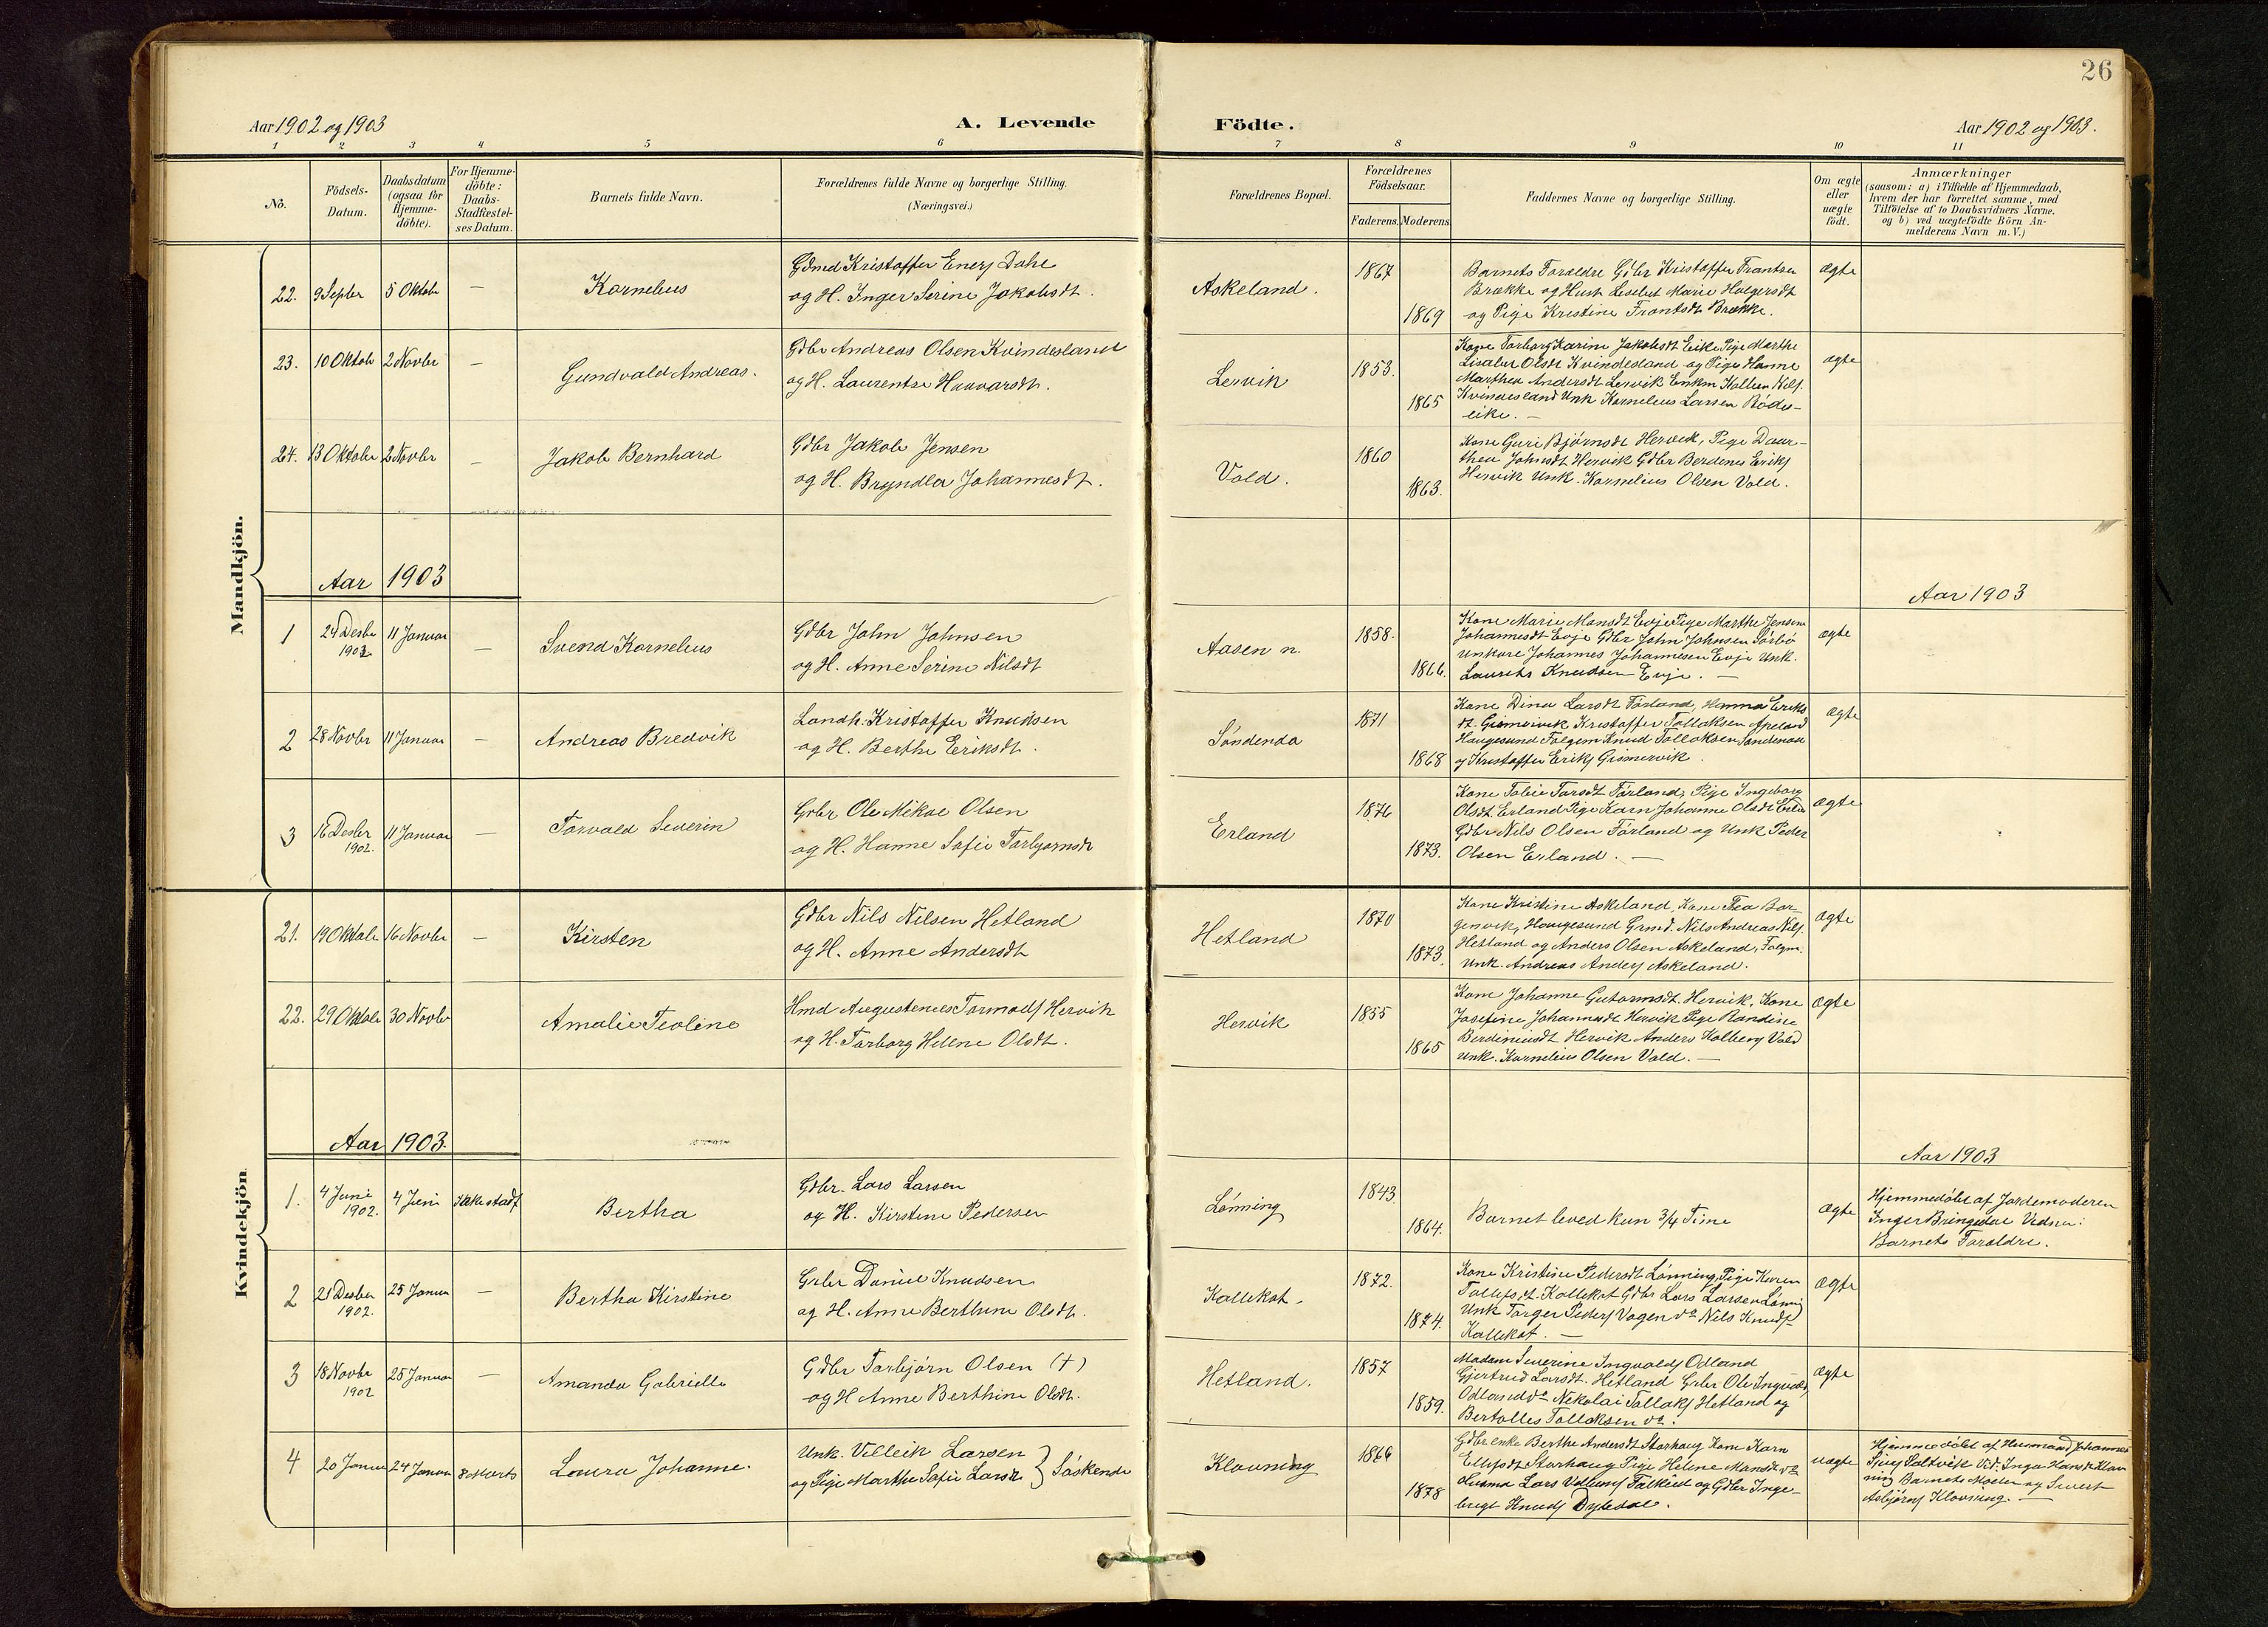 26
Aar 1902 og 1903
A. Levende Födte.
Aar 1902 og 1903.
1 2 3 4 5 6 7 8 9 10 11
No.
Födsels-
Datum.
Daabsdatum
(ogsaa for
Hjemme-
döbte).
For Hjemme-
döbte:
Daabs-
Stadfæstel-
ses Datum.
Barnets fulde Navn.
Forældrenes fulde Navne og borgerlige Stilling.
(Næringsvei.)
Forældrenes Bopæl.
Forældrenes
Födselsaar.
Faderens. Moderens
Faddernes Navne og borgerlige Stilling.
Om ægte
eller
uægte
födt.
Anmærkninger
(saasom: a) i Tilfælde af Hjemmedaab,
hvem der har forrettet samme, med
Tilföielse af to Daabsvidners Navne.
og b) ved uægtefödte Börn An-
melderens Navn m. V.)
Mandkjön.
22. 9 Septbr 5 Oktobr — Kornelius
Gdmd Kristoffer Eners Dahl
og H. Inger Serine Jakobsdt.
Askeland. 1867 1869
Barnets Forældre Gdbr Kristoffer Frantzen
Brække og Hust Lisebet Marie Holgersdt
og Pige Kristine Frantsdt Brække.
Ægte
23. 10 Oktobr 2 Novbr — Gundvald Andreas.
Gdbr Andreas Olsen Kvindesland
og H. Laurentze Haavarsdt.
Lervik 1853. 1865
Kone Torborg Karine Jakobsdt Eike Pige Marthe
Lisabet Olsdt Kvindesland og Pige Hanne
Marthea Andersdt Lervik Enkm Kolbein Nils.
Kvindesland Unk Kornelius Larsen Röde-
eike. —
ægte
24. 13 Oktober 2 Novbr — Jakob Bernhard
Gdbr Jakob Jensen
og H. Bryndla Johannesdt.
Vold. 1860 1863.
Kone Guri Bjørnsdt Hervik, Pige Daar-
thea Johnsdt Hervik Gdbr Berdenes Eriks
Hervik Unk. Kornelius Olsen Vold.
Aar 1903
Aar 1903
1 24 Desbr 1902 11 Januar — Svend Kornelius
Gdbr John Johnsen
og H. Anne Serine Nilsdt
Aasen n. 1858. 1866.
Kone Marie Monsdt Evje Pige Marthe Jensine
Johannesdt Evje Gdbr John Johnsen Sörbö
Unkare Johannes Johannesen Evje Unk.
Laurits Knudsen Evje. —
ægte
2 28 Novbr 11 Januar — Andreas Bredvik
Landh. Kristoffer Knudsen
og H. Berthe Eriksdt.
Söndenaa 1871 1868
Kone Dina Larsdt Førland, Hanna Eriks
dt. Grinnervik Kristoffer Tollaksen Apeland
Haugesund Folgem Knud Tollaksen Søndenaa
og Kristoffer Eriks Grinnervik.
Ægte
3 16 Desbr 1902. 11 Januar — Torvald Severin
Grbr Ole Mikal Olsen
og H. Hanne Sofie Torbjørnsdt
Erland 1876 1873.
Kone Tobie Torsdt Førland, Pige Ingeborg
Olsdt Erland Pige Karn Johanne Olsdt
Gdbr Nils Olsen Førland og Unk Peder
Olsen Erland. —
Ægte
Kvindekjön
21. 19 Oktobr 16 Novbr — Kirsten
Gdbr Nils Nilsen Hetland
og H. Anne Andersdt
Hetland 1870 1873.
Kone Kristine Askeland, Kone Thea Bor-
genvik, Haugesund Grmd. Nils Andreas Nils.
Hetland og Anders Olsen Askeland, Folgm.
Unk. Andreas Anders Askeland.
Ægte
22. 29 Oktobr 30 Novbr Amalie Teoline
Hmd Augustenius Tormods Hervik
og H. Torborg Helene Olsdt.
Hervik 1855 1865
Kone Johanne Gutormsdt. Hervik, Kone
Josefine Johannesdt Hervik Pige Randine
Berdiniusdt Hervik Anders Kolbens Vold
Unk. Kornelius Olsen Vold. —
Ægte
Aar 1903.
Aar 1903
1. 4 Juni 1902. 4 Juni Ikke stadf Bertha
Gdbr. Lars Larsen
og H. Kirstine Pedersen
Lönning 1843 1864.
Barnet leved kun 3/4 Time
Ægte
Hjemmedöbt af Jordemoderen
Inger Bringedal Vidner:
Barnets Forældre.
2 21 Desber 1902. 25 Januar — Bertha Kirstine
Grbr Daniel Knudsen
og H. Anne Berthine Olsdt.
Kallekot. 1872. 1874.
Kone Kristine Pedersdt Lønning, Pige Karen
Tollefsdt. Kallekot Gdbr Lars Larsen Lønning
Unk Torger Peders Vagen do Nils Knuds
Kallekot. —
Ægte
3 18 Novbr 1902 25 Januar — Amanda Gabrielle
Gdbr Torbjörn Olsen (†)
og H Anne Berthine Olsdt.
Hetland. 1857 1859.
Madam Severine Ingvalds Odland
Gjertrud Larsdt. Hetland Grbr Ole Ingvalds
Odland do Nikolai Tollaks Hetland og
Bertolles Tollaksen do.
Ægte
4 20 Januar 24 Januar 8 Marts Laura Johanne.
Unk. Villeik Larsen
og Pige Marthe Sofie Larsdt } Söskende
Klovning 1866 1878
Gdbr enke Berthe Andersdt Storhaug Kone Karn
Storhaug Pige Helene Monsdt do
Lars Falkeid og Gdbr Inge-
bregt Knuds Dybdal.
uægte
Hjemmedöbt af Husmand Johannes
Saltvik Vid: Inga Hansdt Klov-
ning Barnets Moder og Sivert
Asbjørns Klovning. —